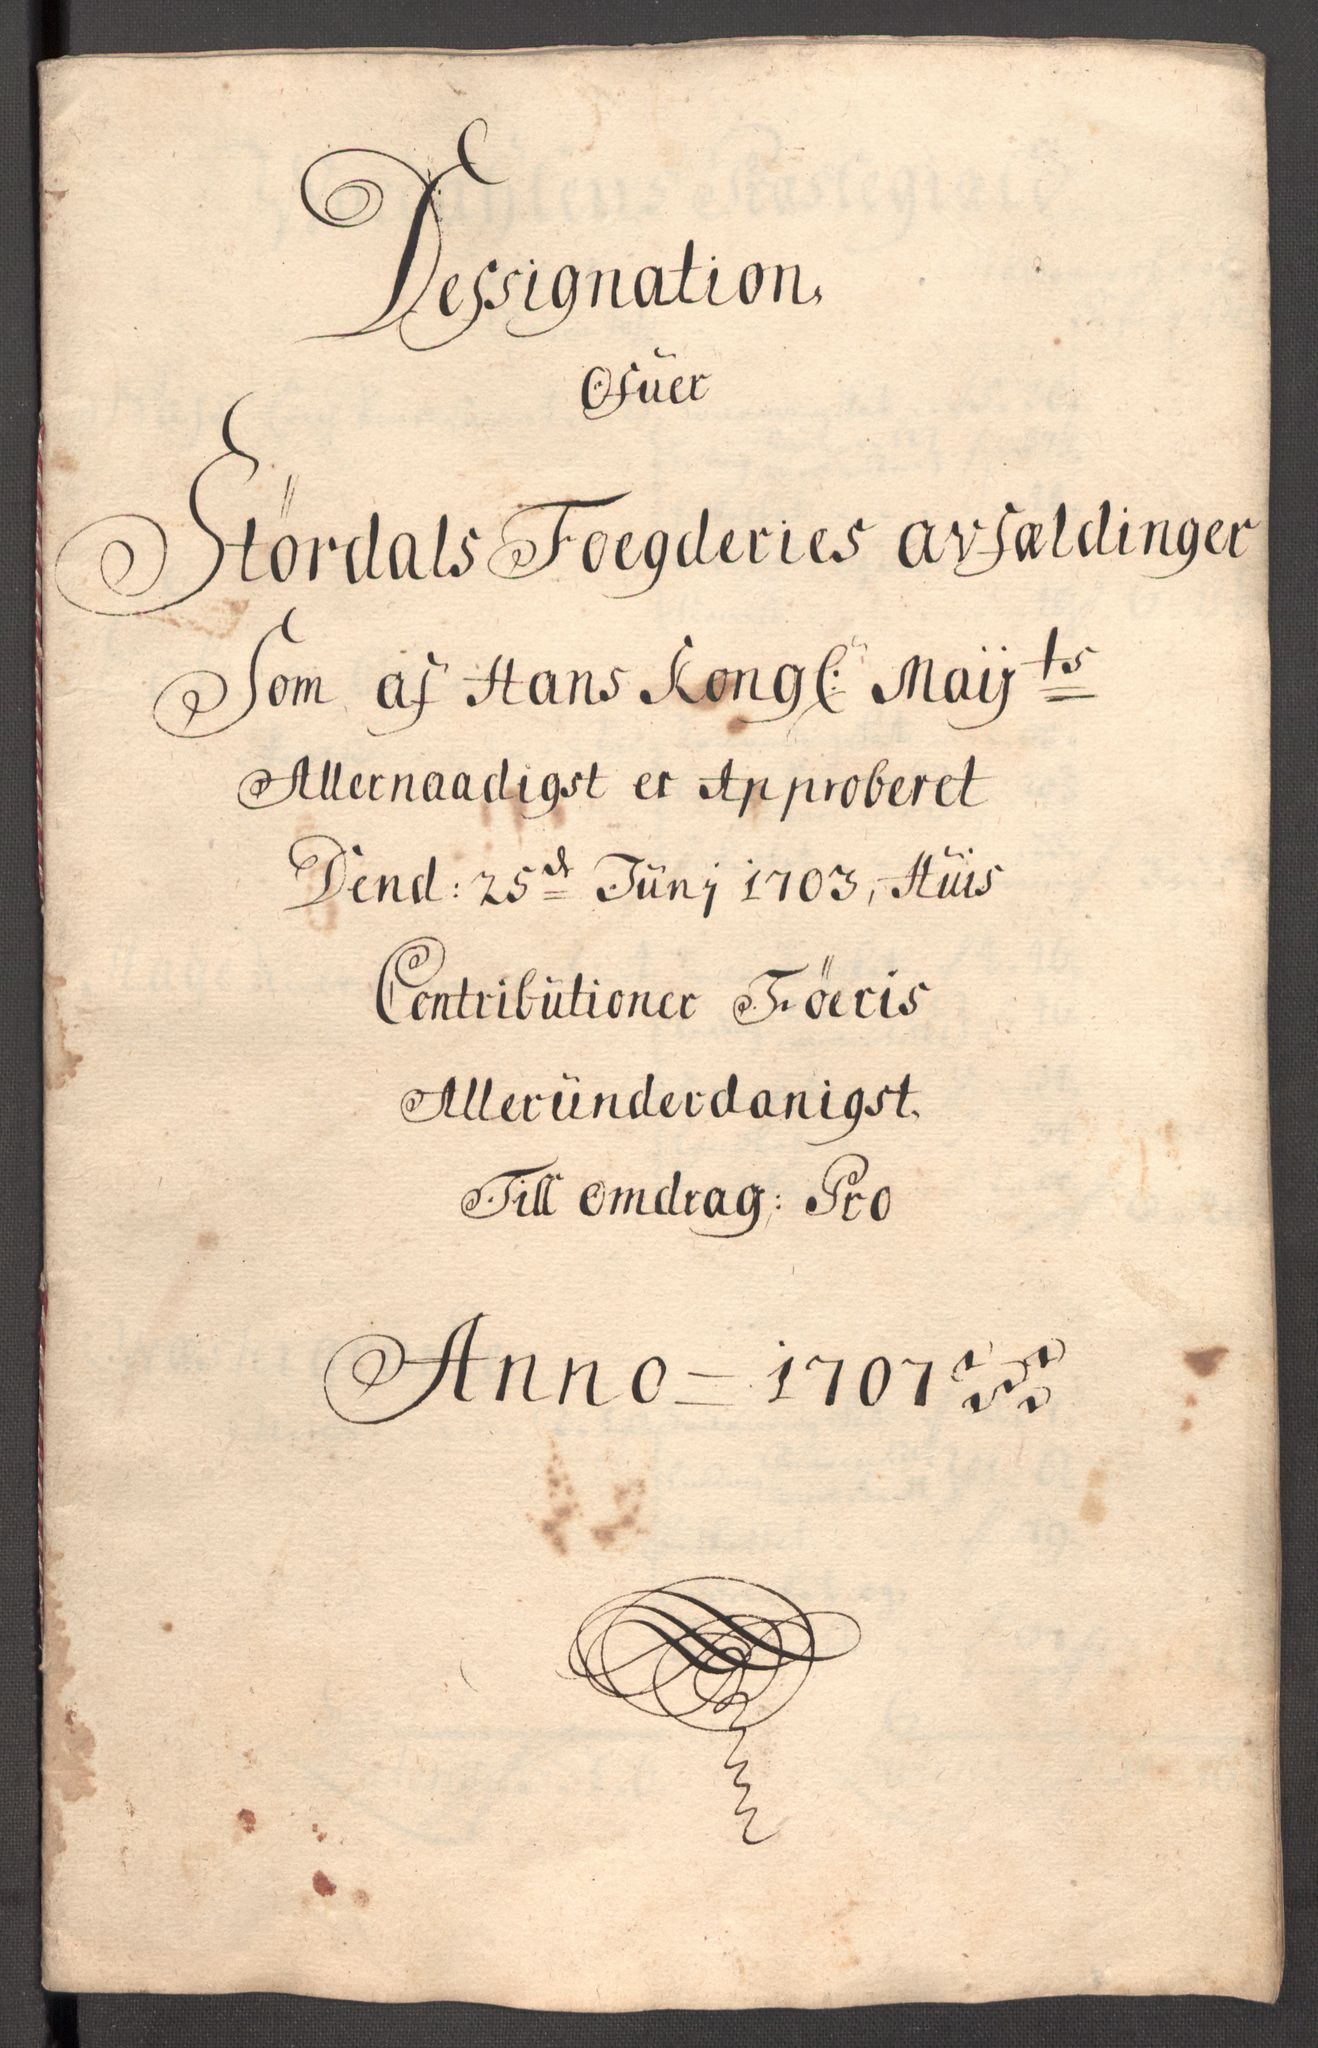 Dessignation.
Ofüer
Stördals Foegderies avfældinger
Som af Hans Kongl: Maijts
Allernaadigst er Approberet
Dend: 25de Junj 1703, Hüis
Contribütioner Föeris
Alleründerdanigst.
Till omdrag: Pro
Anno = 1707